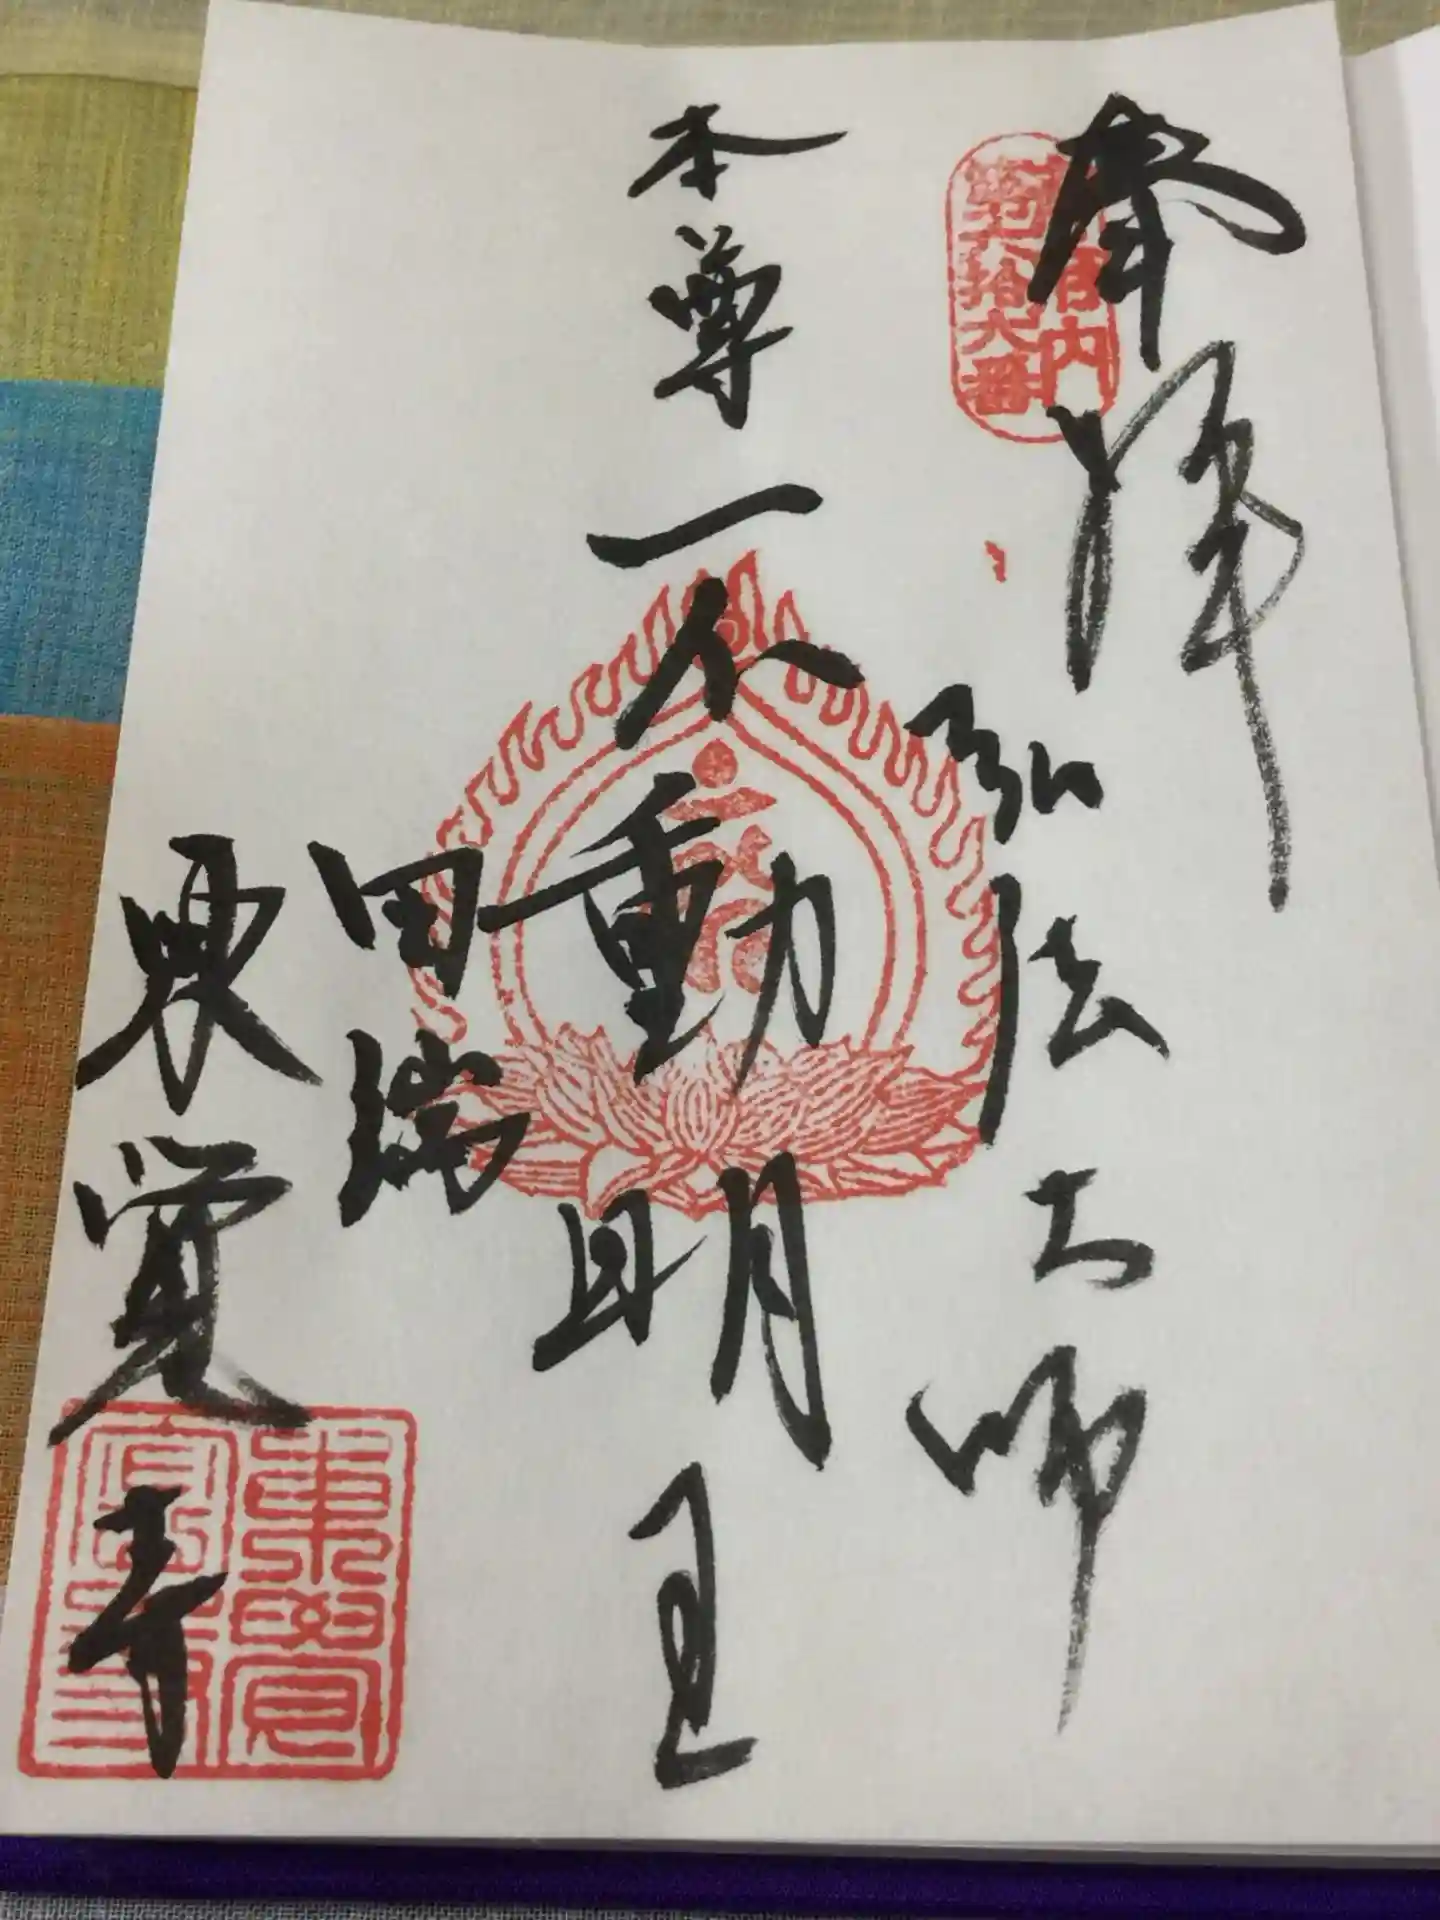 奉拝
弘法大師
本尊 不動明王
田端
東覚寺
第六拾六番
東覚寺